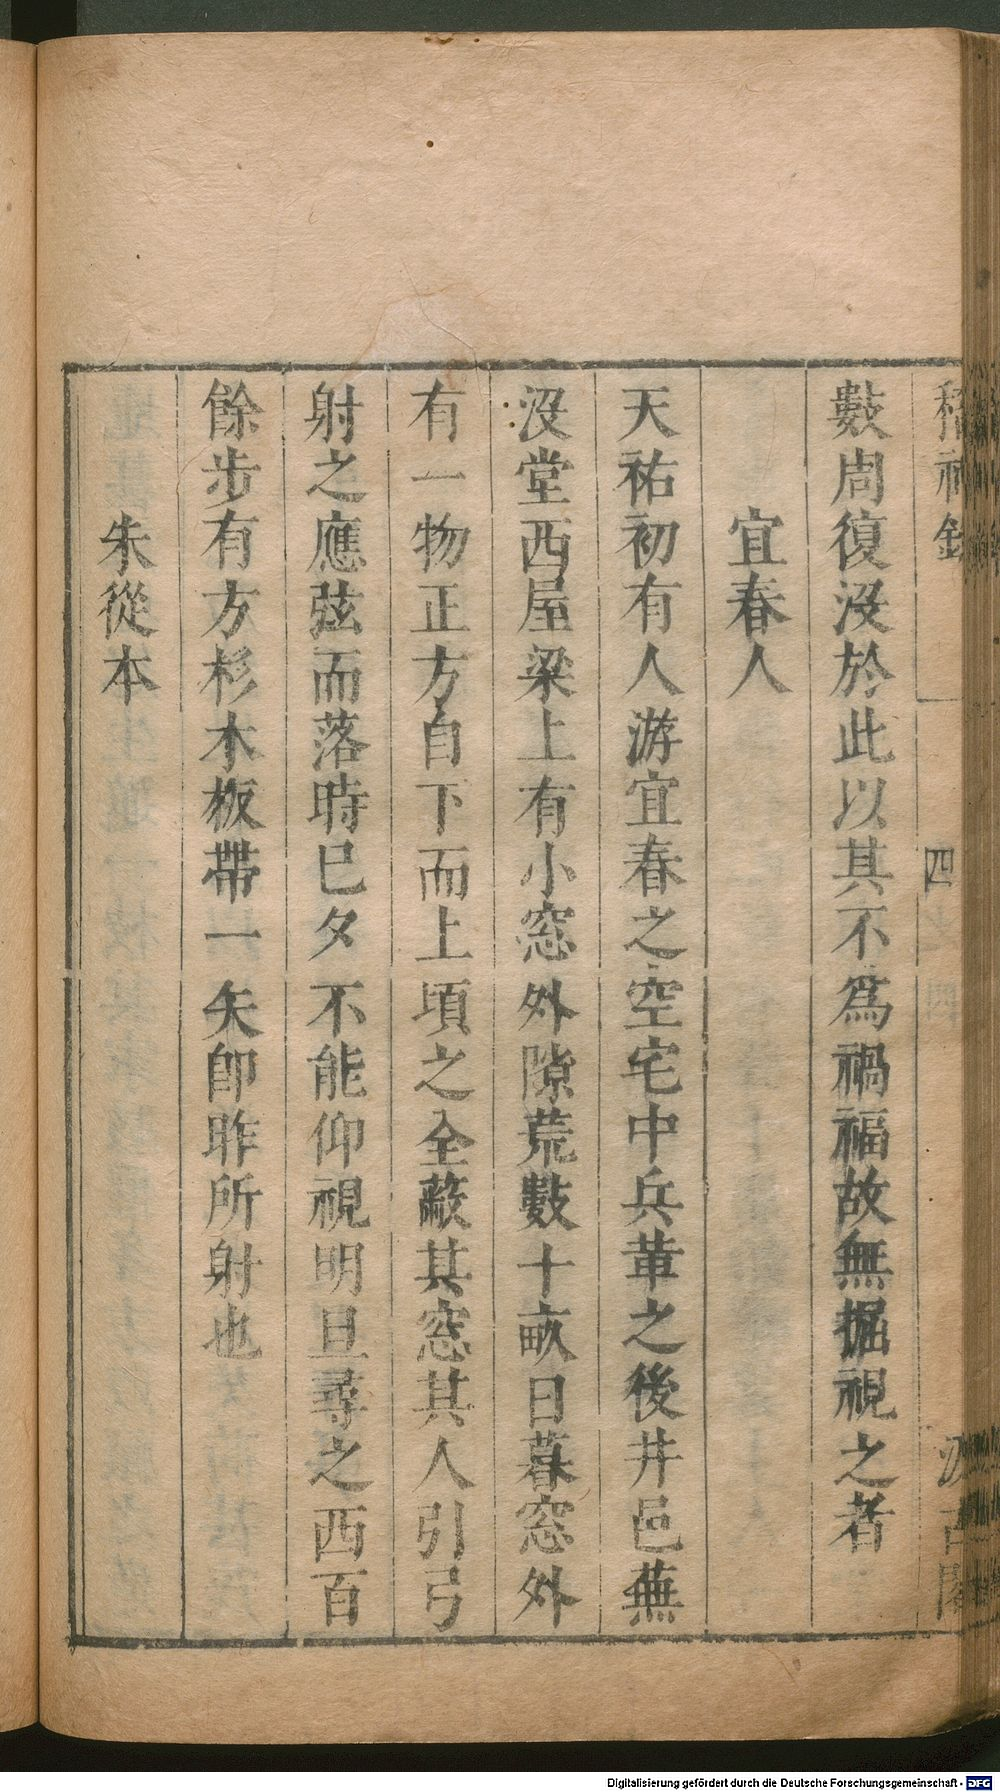 稽神錄
四
汲古閣
數周復沒於此以其不爲禍福故無掘視之者
宜春人
天祐初有人游宜春之空宅中兵革之後井邑蕪
沒堂西屋梁上有小窓外隙荒數十畝日暮窓外
有一物正方自下而上頃之全蔽其窓其人引弓
射之應弦而落時已夕不能仰視明旦尋之西百
餘步有方杉木板帶一矢卽昨所射也
朱從本
Digitalisierung gefördert durch die Deutsche Forschungsgemeinschaft - DFG